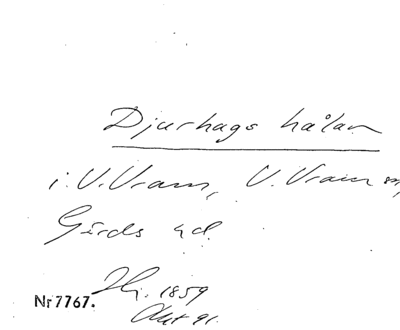 Djurhags hålan
i V. Vram, V. Vram sn,
Gärds hd.
Hg. 1859
Akt 91.
Nr 7767.